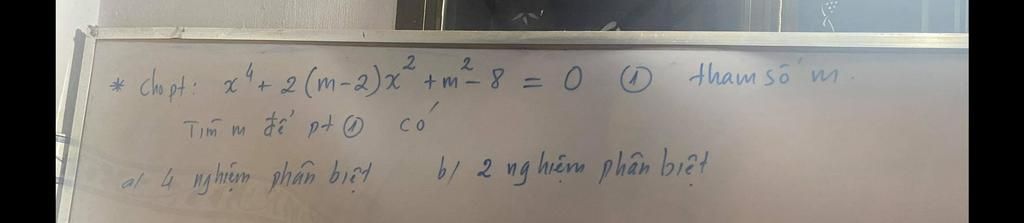 * Cho pt: x⁴ + 2(m-2)x² + m² - 8 = 0 ① tham số m.
Tìm m để pt ① có
a/ 4 nghiệm phân biệt b/ 2 nghiệm phân biệt